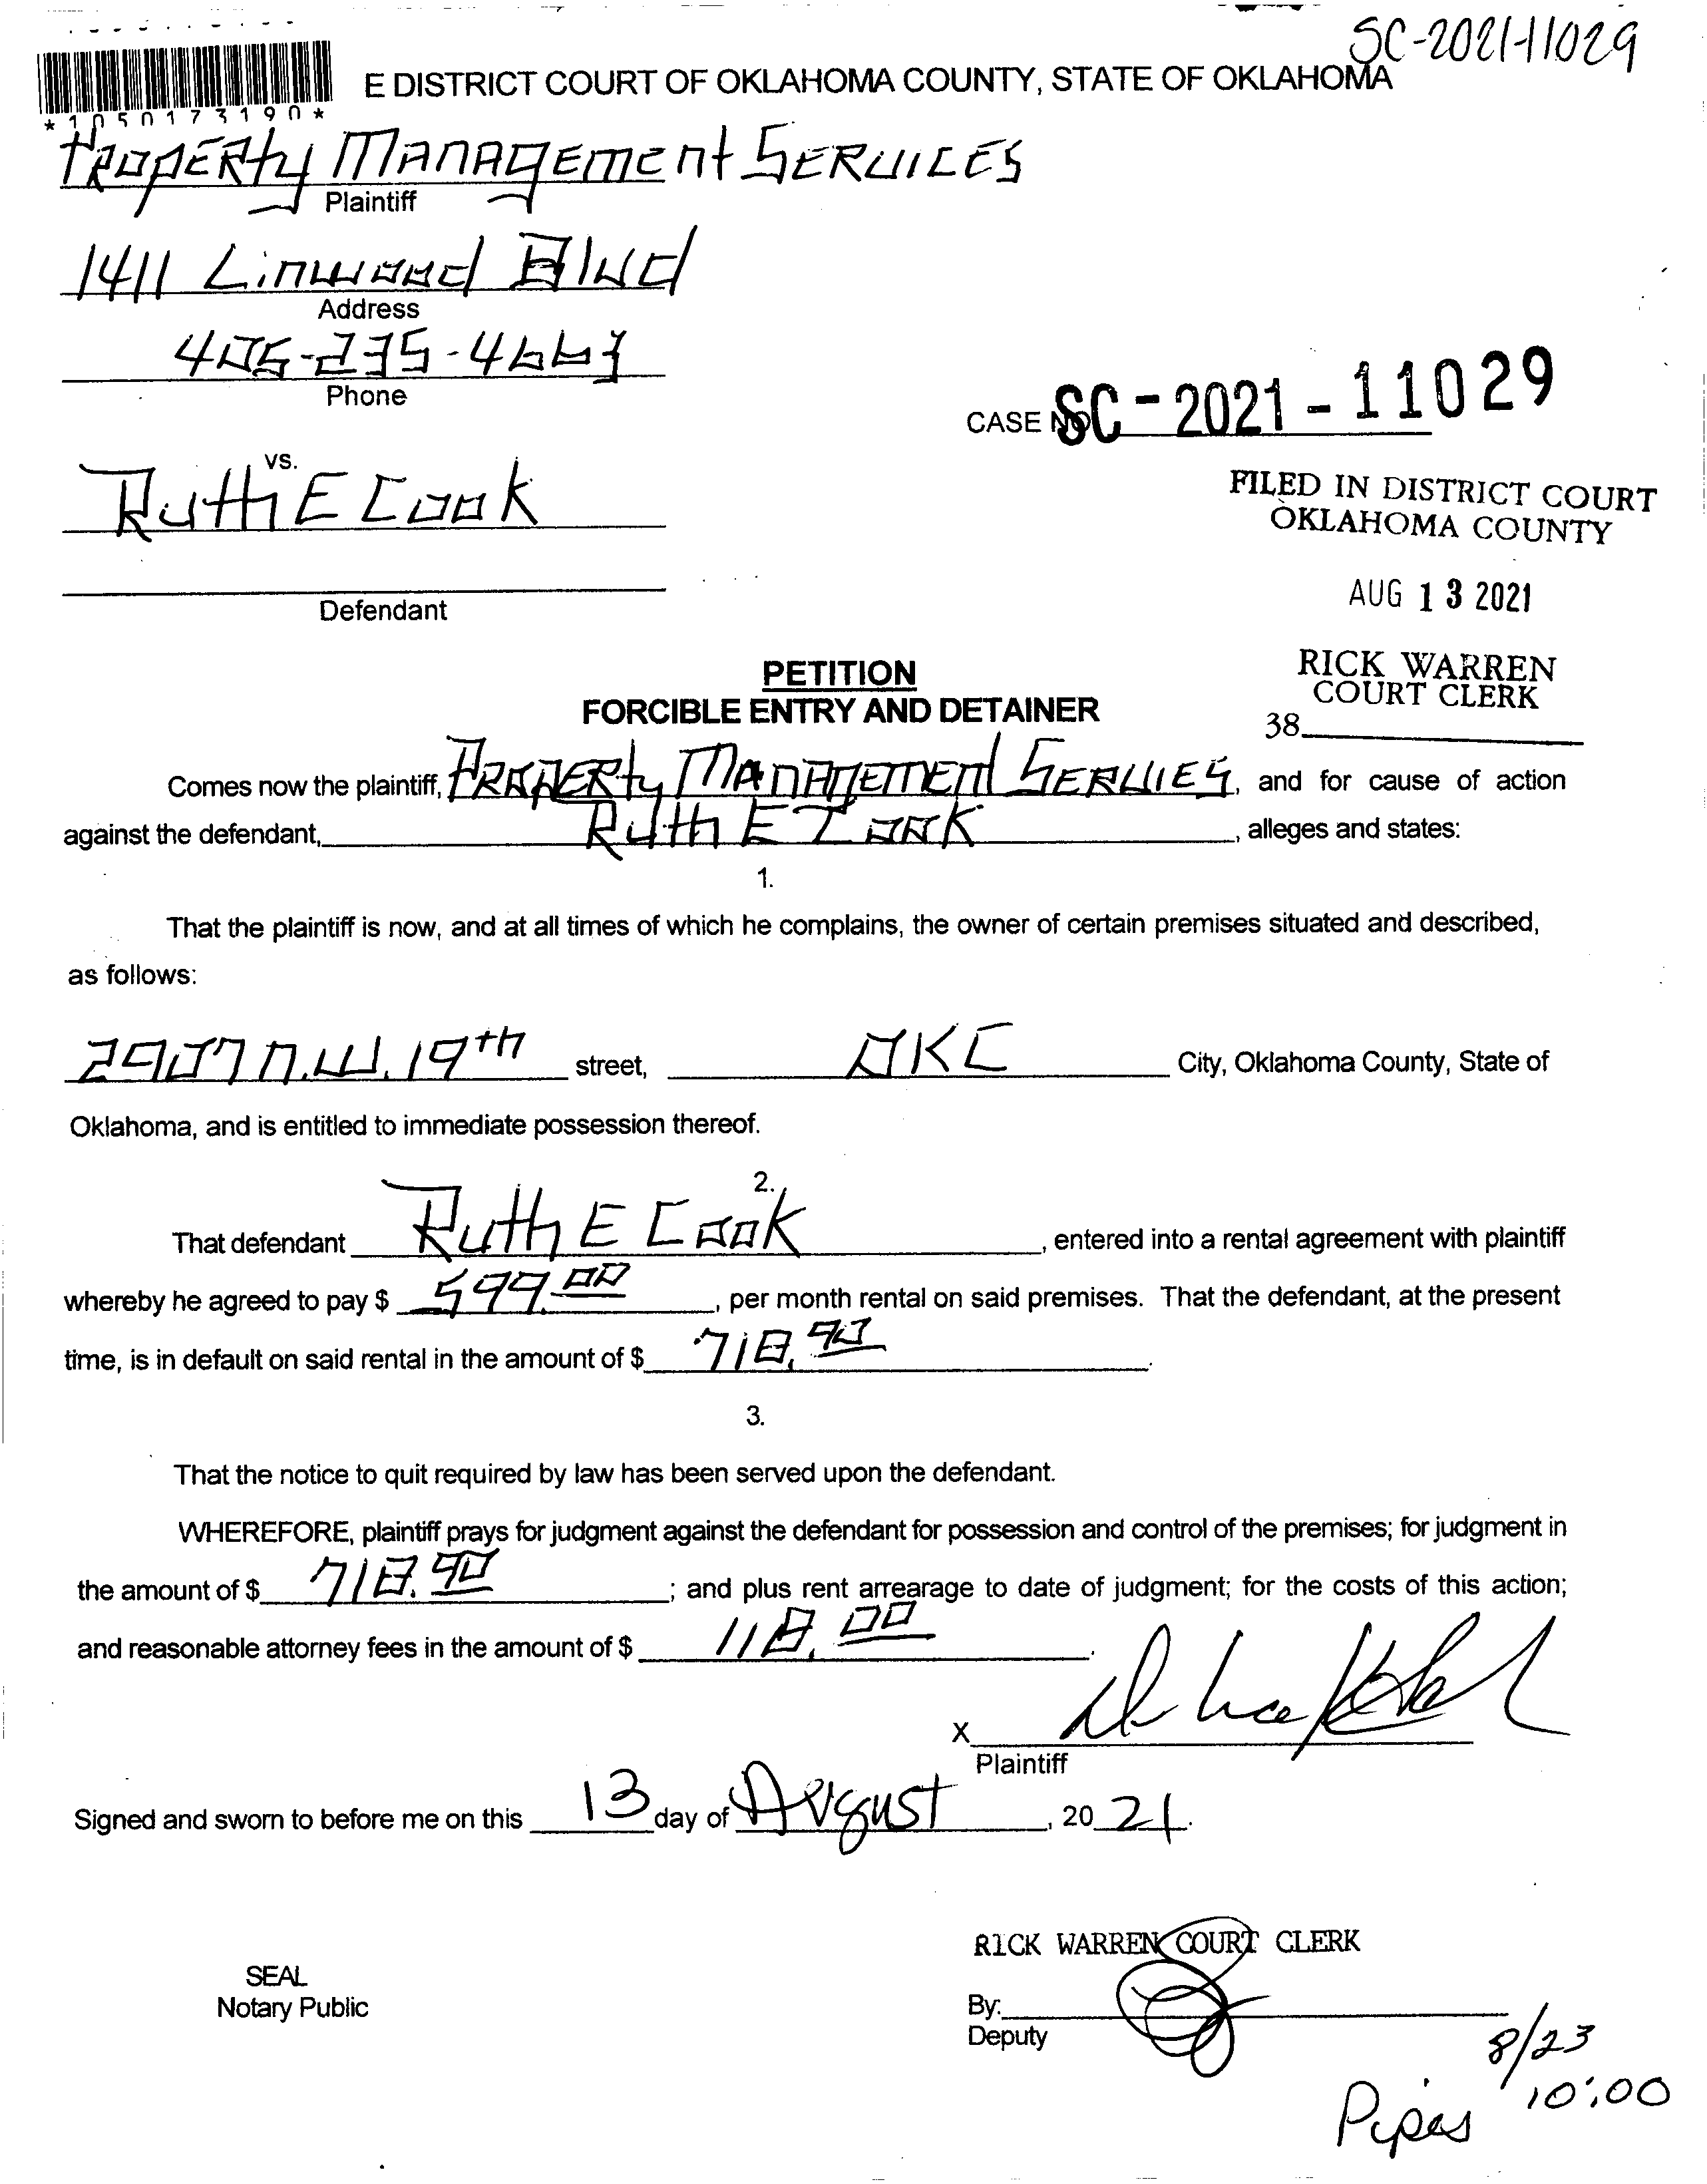 SC-2021-11029
E DISTRICT COURT OF OKLAHOMA COUNTY, STATE OF OKLAHOMA
*1050173190*
Property Management Services
Plaintiff
1411 Linwood Blvd
Address
405-235-4663
Phone
CASE NO SC-2021-11029
vs.
Ruth E Cook
FILED IN DISTRICT COURT
OKLAHOMA COUNTY
AUG 13 2021
Defendant
RICK WARREN
COURT CLERK
38
PETITION
FORCIBLE ENTRY AND DETAINER
Comes now the plaintiff, Property Management Servies, and for cause of action
against the defendant, Ruth E Cook, alleges and states:
1.
That the plaintiff is now, and at all times of which he complains, the owner of certain premises situated and described,
as follows:
2907 N.W. 19th street, OKC City, Oklahoma County, State of
Oklahoma, and is entitled to immediate possession thereof.
2.
That defendant Ruth E Cook, entered into a rental agreement with plaintiff
whereby he agreed to pay $ 599.00, per month rental on said premises. That the defendant, at the present
time, is in default on said rental in the amount of $ 718.90.
3.
That the notice to quit required by law has been served upon the defendant.
WHEREFORE, plaintiff prays for judgment against the defendant for possession and control of the premises; for judgment in
the amount of $ 718.90; and plus rent arrearage to date of judgment; for the costs of this action;
and reasonable attorney fees in the amount of $ 118.00.
X
Plaintiff
Signed and sworn to before me on this 13 day of August, 2021.
RICK WARREN COURT CLERK
SEAL
Notary Public
By:
Deputy
8/23
10:00
Pipes